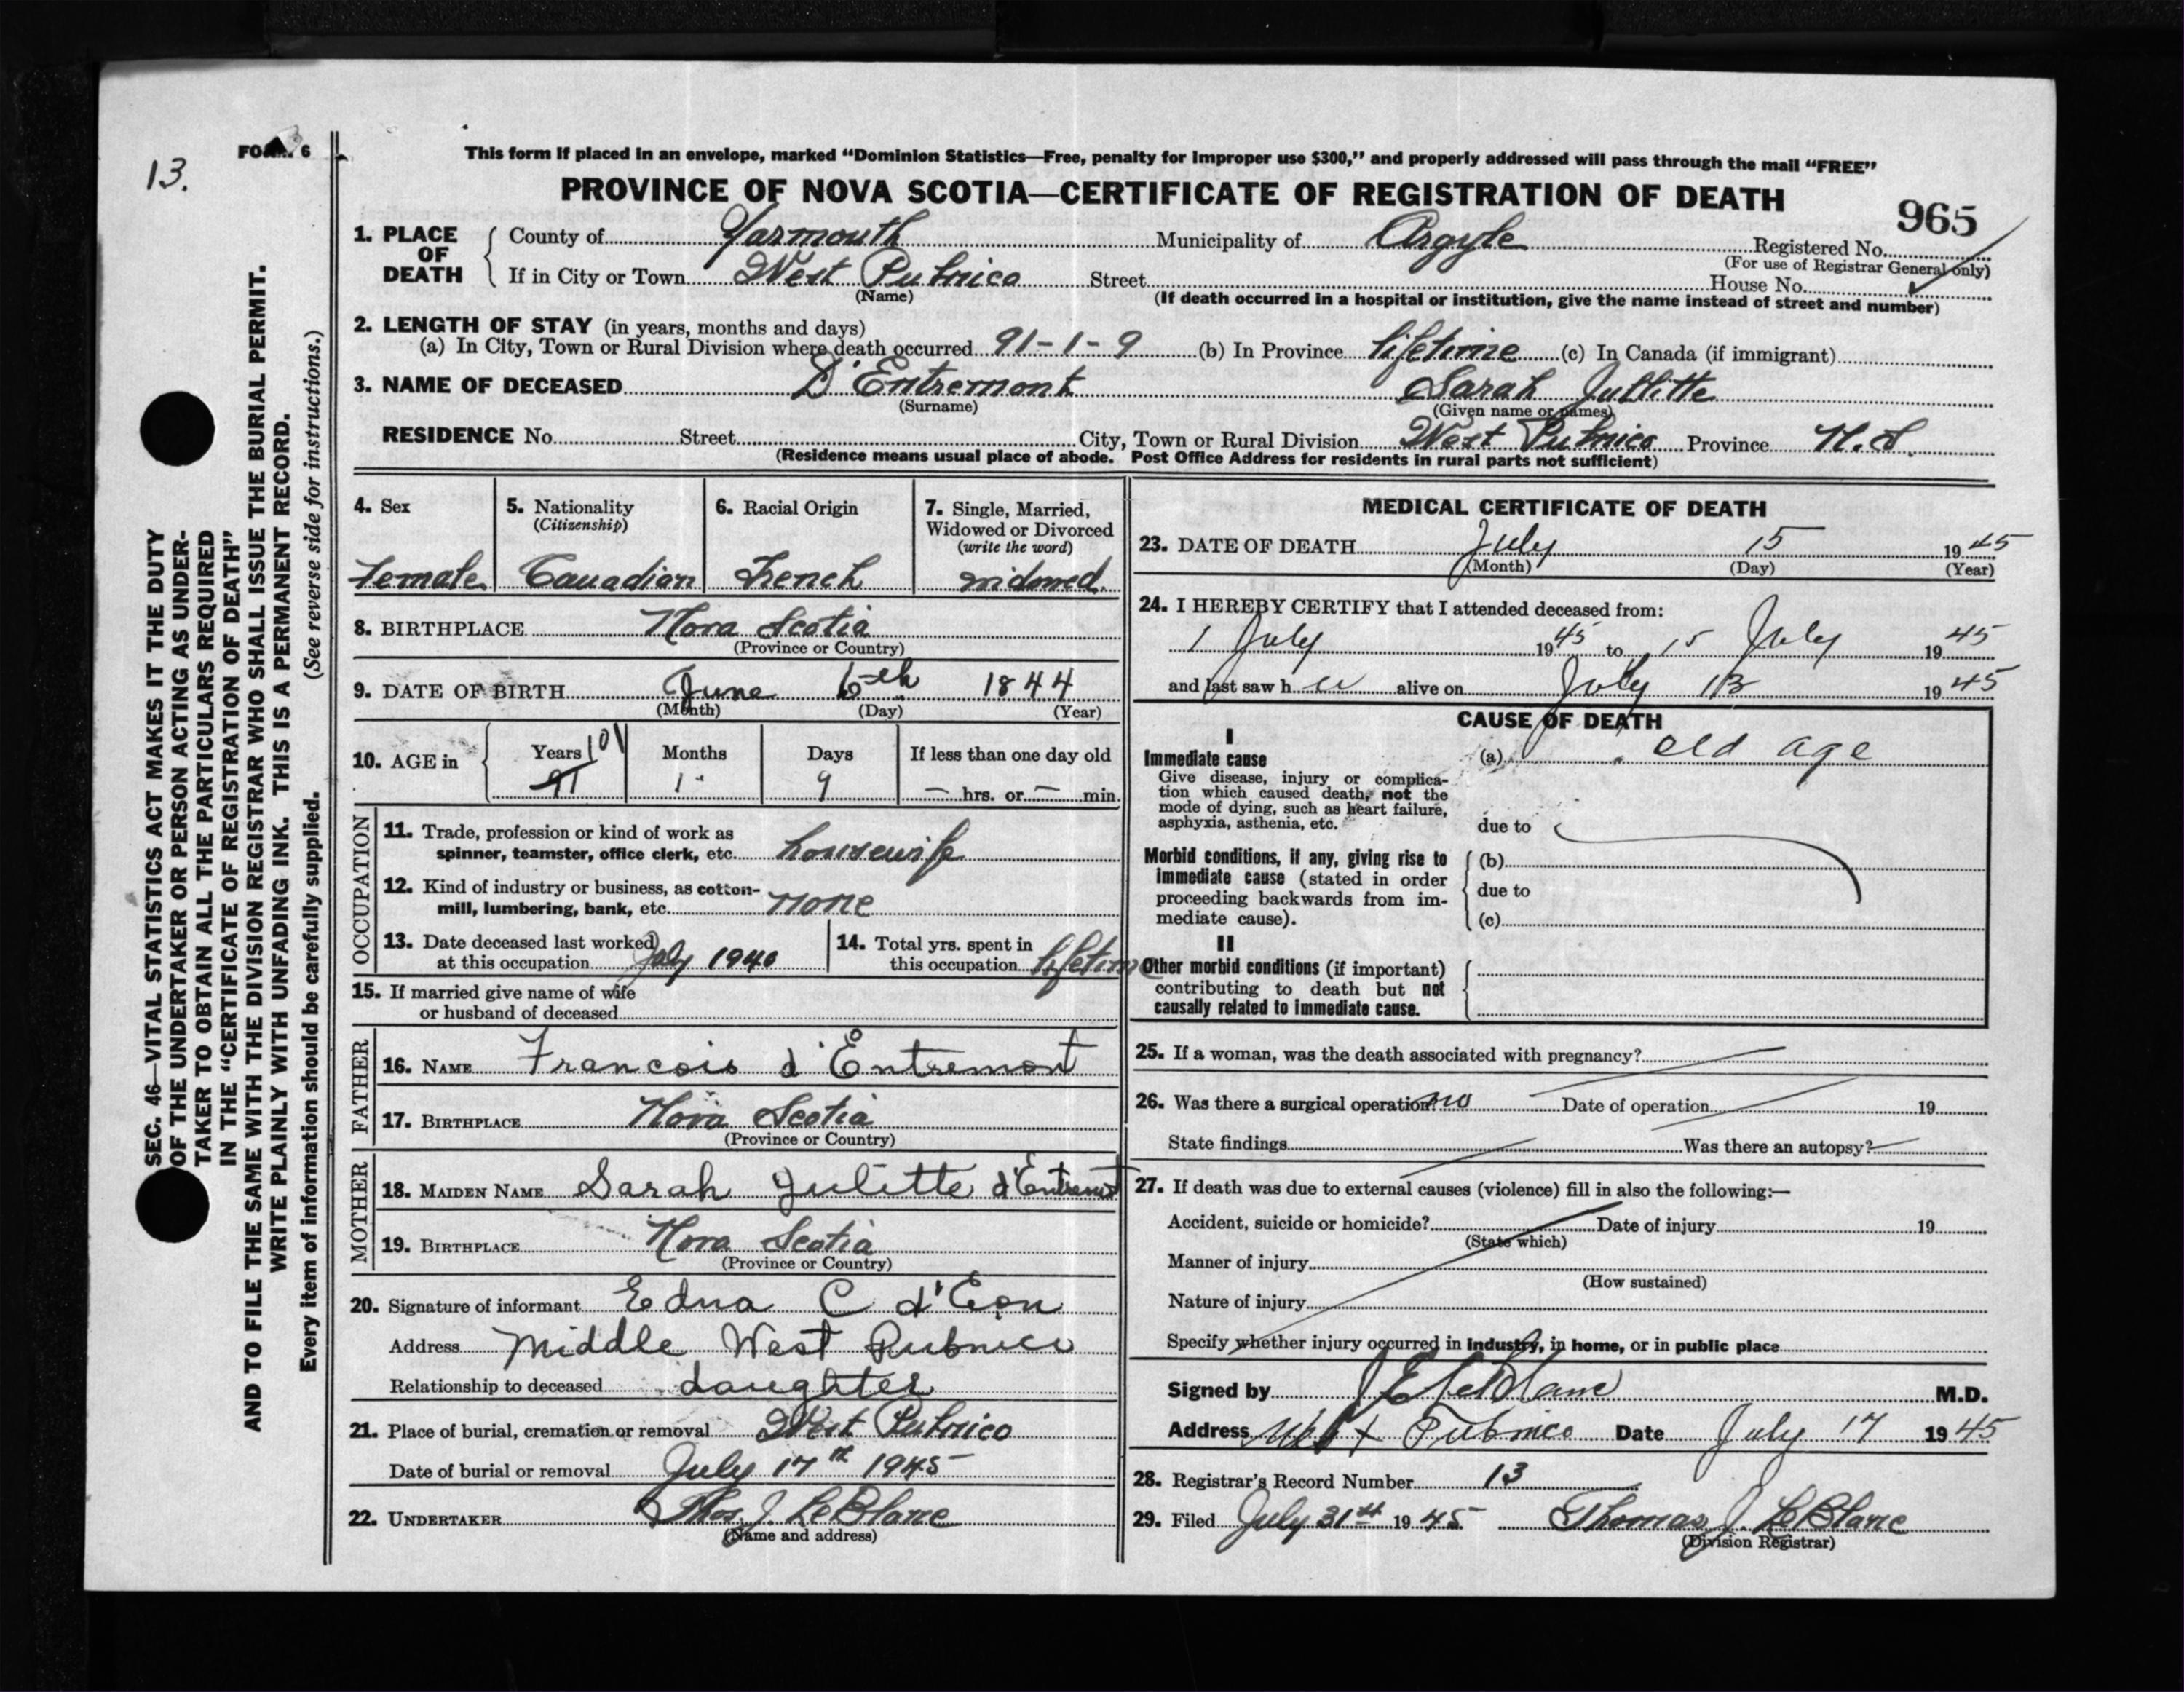 13.
FORM 6
This form if placed in an envelope, marked “Dominion Statistics—Free, penalty for improper use $300,” and properly addressed will pass through the mail “FREE”
PROVINCE OF NOVA SCOTIA—CERTIFICATE OF REGISTRATION OF DEATH
965
1. PLACE OF DEATH
County of Yarmouth Municipality of Argyle Registered No.
(For use of Registrar General only)
If in City or Town West Pubnico Street House No.
(Name) (If death occurred in a hospital or institution, give the name instead of street and number)
2. LENGTH OF STAY (in years, months and days)
(a) In City, Town or Rural Division where death occurred 91-1-9 (b) In Province lifetime (c) In Canada (if immigrant)
3. NAME OF DECEASED D'Entremont Sarah Jullitte
(Surname) (Given name or names)
RESIDENCE No. Street City, Town or Rural Division West Pubnico Province N.S.
(Residence means usual place of abode. Post Office Address for residents in rural parts not sufficient)
4. Sex
female
5. Nationality
(Citizenship)
Canadian
6. Racial Origin
French
7. Single, Married,
Widowed or Divorced
(write the word)
widowed.
8. BIRTHPLACE Nova Scotia
(Province or Country)
9. DATE OF BIRTH June 6th 1844
(Month) (Day) (Year)
10. AGE in
Years 101
91
Months
1
Days
9
If less than one day old
— hrs. or — min.
OCCUPATION
11. Trade, profession or kind of work as
spinner, teamster, office clerk, etc. housewife
12. Kind of industry or business, as cotton-
mill, lumbering, bank, etc. none
13. Date deceased last worked
at this occupation July 1940
14. Total yrs. spent in
this occupation lifetime
15. If married give name of wife
or husband of deceased
FATHER
16. NAME Francois d'Entremont
17. BIRTHPLACE Nova Scotia
(Province or Country)
MOTHER
18. MAIDEN NAME Sarah Julitte d'Entremont
19. BIRTHPLACE Nova Scotia
(Province or Country)
20. Signature of informant Edna C d'Eon
Address Middle West Pubnico
Relationship to deceased daughter
21. Place of burial, cremation or removal West Pubnico
Date of burial or removal July 17th 1945
22. UNDERTAKER Thos. J. LeBlanc
(Name and address)
MEDICAL CERTIFICATE OF DEATH
23. DATE OF DEATH July 15 1945
(Month) (Day) (Year)
24. I HEREBY CERTIFY that I attended deceased from:
1 July 1945 to 15 July 1945
and last saw h er alive on July 13 1945
CAUSE OF DEATH
I
Immediate cause
Give disease, injury or complica-
tion which caused death, not the
mode of dying, such as heart failure,
asphyxia, asthenia, etc.
(a) old age
due to
Morbid conditions, if any, giving rise to
immediate cause (stated in order
proceeding backwards from im-
mediate cause).
(b)
due to
(c)
II
Other morbid conditions (if important)
contributing to death but not
causally related to immediate cause.
25. If a woman, was the death associated with pregnancy?
26. Was there a surgical operation? no Date of operation 19
State findings Was there an autopsy?
27. If death was due to external causes (violence) fill in also the following:—
Accident, suicide or homicide? Date of injury 19
(State which)
Manner of injury
(How sustained)
Nature of injury
Specify whether injury occurred in industry, in home, or in public place
Signed by J E LeBlanc M.D.
Address West Pubnico Date July 17 1945
28. Registrar's Record Number 13
29. Filed July 31st 1945 Thomas J. LeBlanc
(Division Registrar)
SEC. 46—VITAL STATISTICS ACT MAKES IT THE DUTY
OF THE UNDERTAKER OR PERSON ACTING AS UNDER-
TAKER TO OBTAIN ALL THE PARTICULARS REQUIRED
IN THE “CERTIFICATE OF REGISTRATION OF DEATH”
AND TO FILE THE SAME WITH THE DIVISION REGISTRAR WHO SHALL ISSUE THE BURIAL PERMIT.
WRITE PLAINLY WITH UNFADING INK. THIS IS A PERMANENT RECORD.
Every item of information should be carefully supplied. (See reverse side for instructions.)